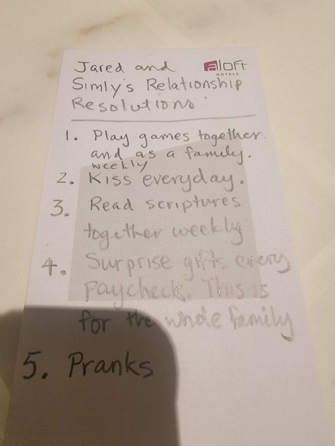 Jared and
aloft
HOTELS
Simly's Relationship
Resolutions
1. Play games together
and as a family.
weekly
2. Kiss everyday.
3. Read scriptures
together weekly
4. Surprise gifts every
Paycheck. This is
for the whole family
5. Pranks